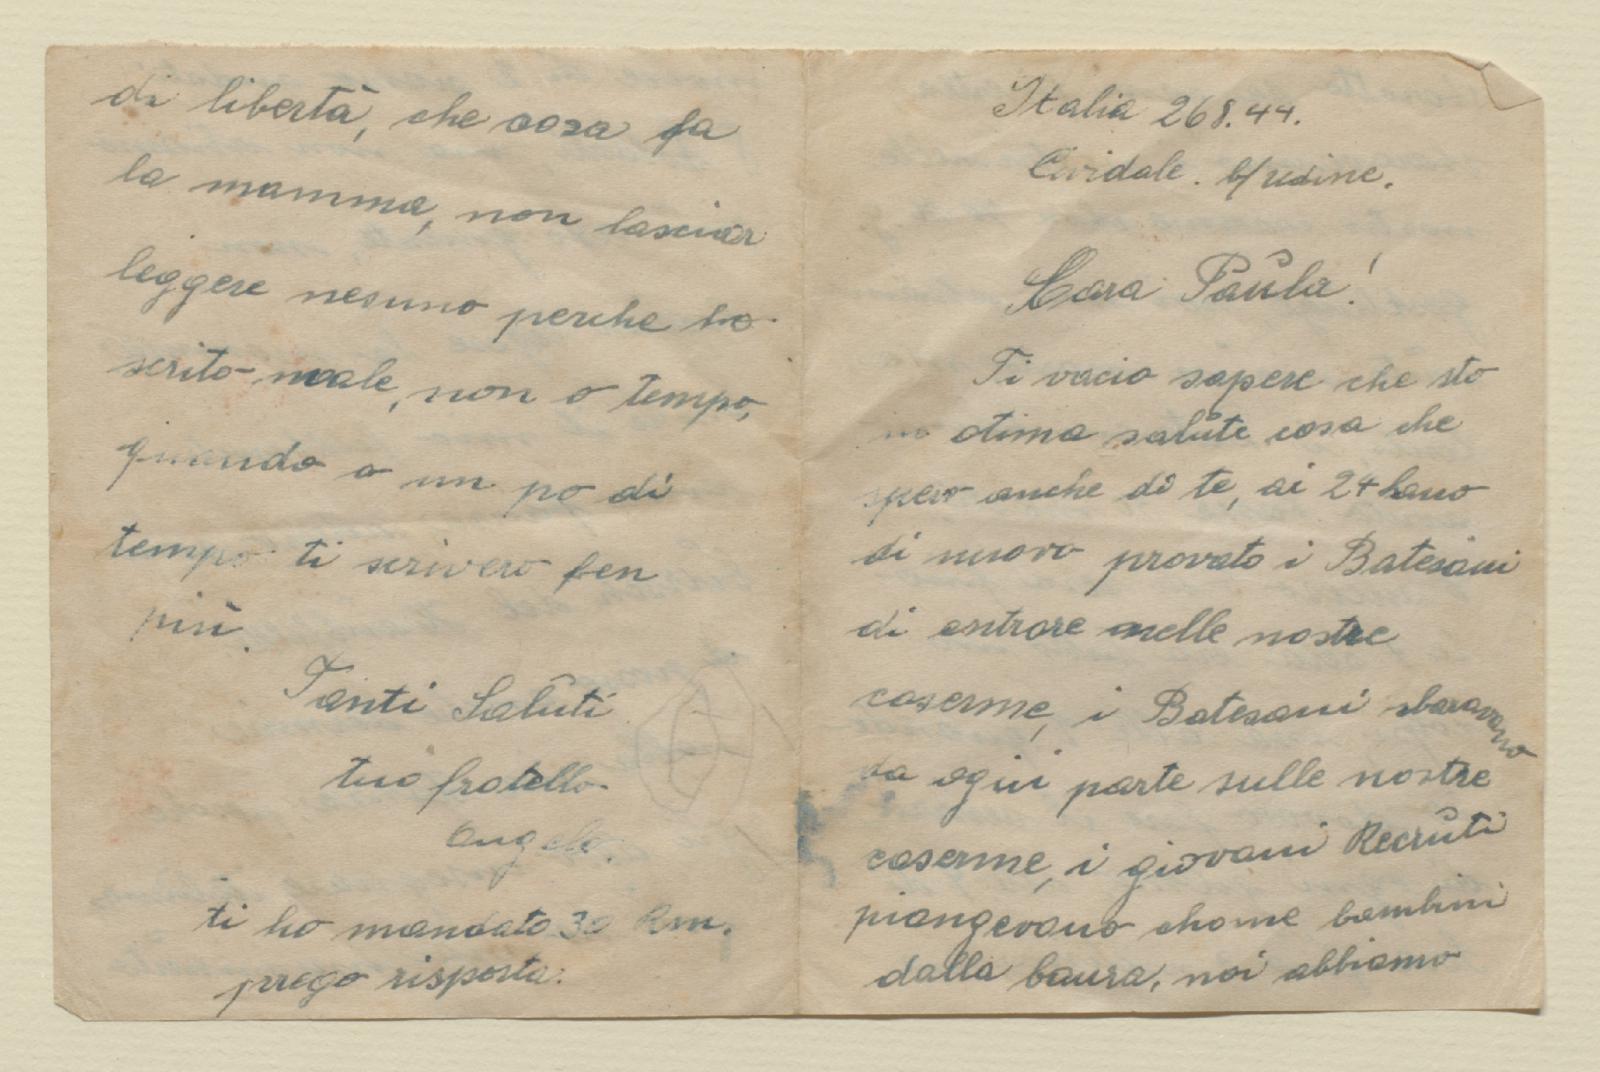 Italia 26 8. 44.
Cividale. b/udine.
Cara Paŭla!
Ti vacio sapere che sto
in otima salŭte cosa che
spero anche di te, ai 24 hano
di nuovo provato i Batesani
di entrare nelle nostre
caserme, i Batesani sbaravano
da ogini parte sulle nostre
caserme, i giovani Recrŭti
piangevano chome bambini
dalla baura, noi abbiamo
di libertà, che cosa fa
la mamma, non lasciar
leggere nesuno perche ho
scrito male, non o tempo,
quando o un po di
tempo ti scrivero ben
più.
Tanti Salŭti
tuo fratello
Angelo.
ti ho mandato 30 Rm.
prego risposta.